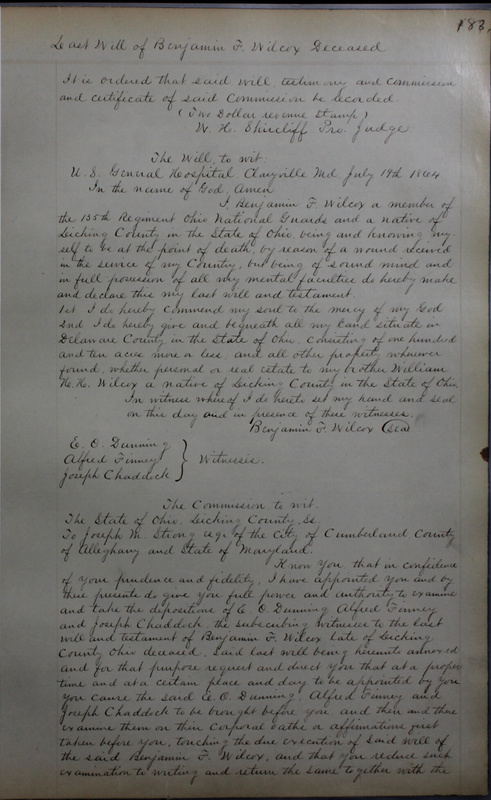 183.
Last Will of Benjamin F. Wilcox Deceased
It is ordered that said will, testimony and commission
and certificate of said Commission be recorded.
(Two Dollar revenue Stamp)
W. H. Shircliff Pro. Judge
The Will, to wit:
U. S. General Hospital Claryville Md. July 19th 1864
In the name of God, Amen
I Benjamin F. Wilcox a member of
the 135th Regiment Ohio National Guards and a native of
Licking County in the State of Ohio, being and knowing my-
self to be at the point of death, by reason of a wound received
in the service of my Country, but being of sound mind and
in full possession of all my mental faculties do hereby make
and declare this my last will and testament.
1st I do hereby commend my soul to the mercy of my God
2nd I do hereby give and bequeath all my land situate in
Delaware County in the State of Ohio, Consisting of one hundred
and ten acres more or less, and all other property wherever
found, whether personal or real estate to my brother William
H. H. Wilcox a native of Licking County in the State of Ohio
In witness whereof I do hereto set my hand and seal
on this day and in presence of these witnesses.
Benjamin F. Wilcox (Seal)
E. O. Dunning
Alfred Finney
Joseph Chaddock } Witnesses.
The Commission to wit.
The State of Ohio, Licking County, Ss.
To Joseph M. Strong esqr of the City of Cumberland County
of Alleghany and State of Maryland.
Know You, that in confidence
of your prudence and fidelity, I have appointed you and by
these presents do give you full power and authority to examine
and take the depositions of E. O. Dunning Alfred Finney
and Joseph Chaddock, the subscribing witnesses to the last
will and testament of Benjamin F. Wilcox late of Licking
County Ohio deceased, said last will being hereunto annexed
and for that purpose request and direct you that at a proper
time and at a certain place and day to be appointed by you
you cause the said E. O. Dunning, Alfred Finney and
Joseph Chaddock to be brought before you and then and there
examine them on their corporal oaths or affirmations first
taken before you, touching the due execution of said will of
the said Benjamin F. Wilcox, and that you reduce such
examination to writing and return the same together with the